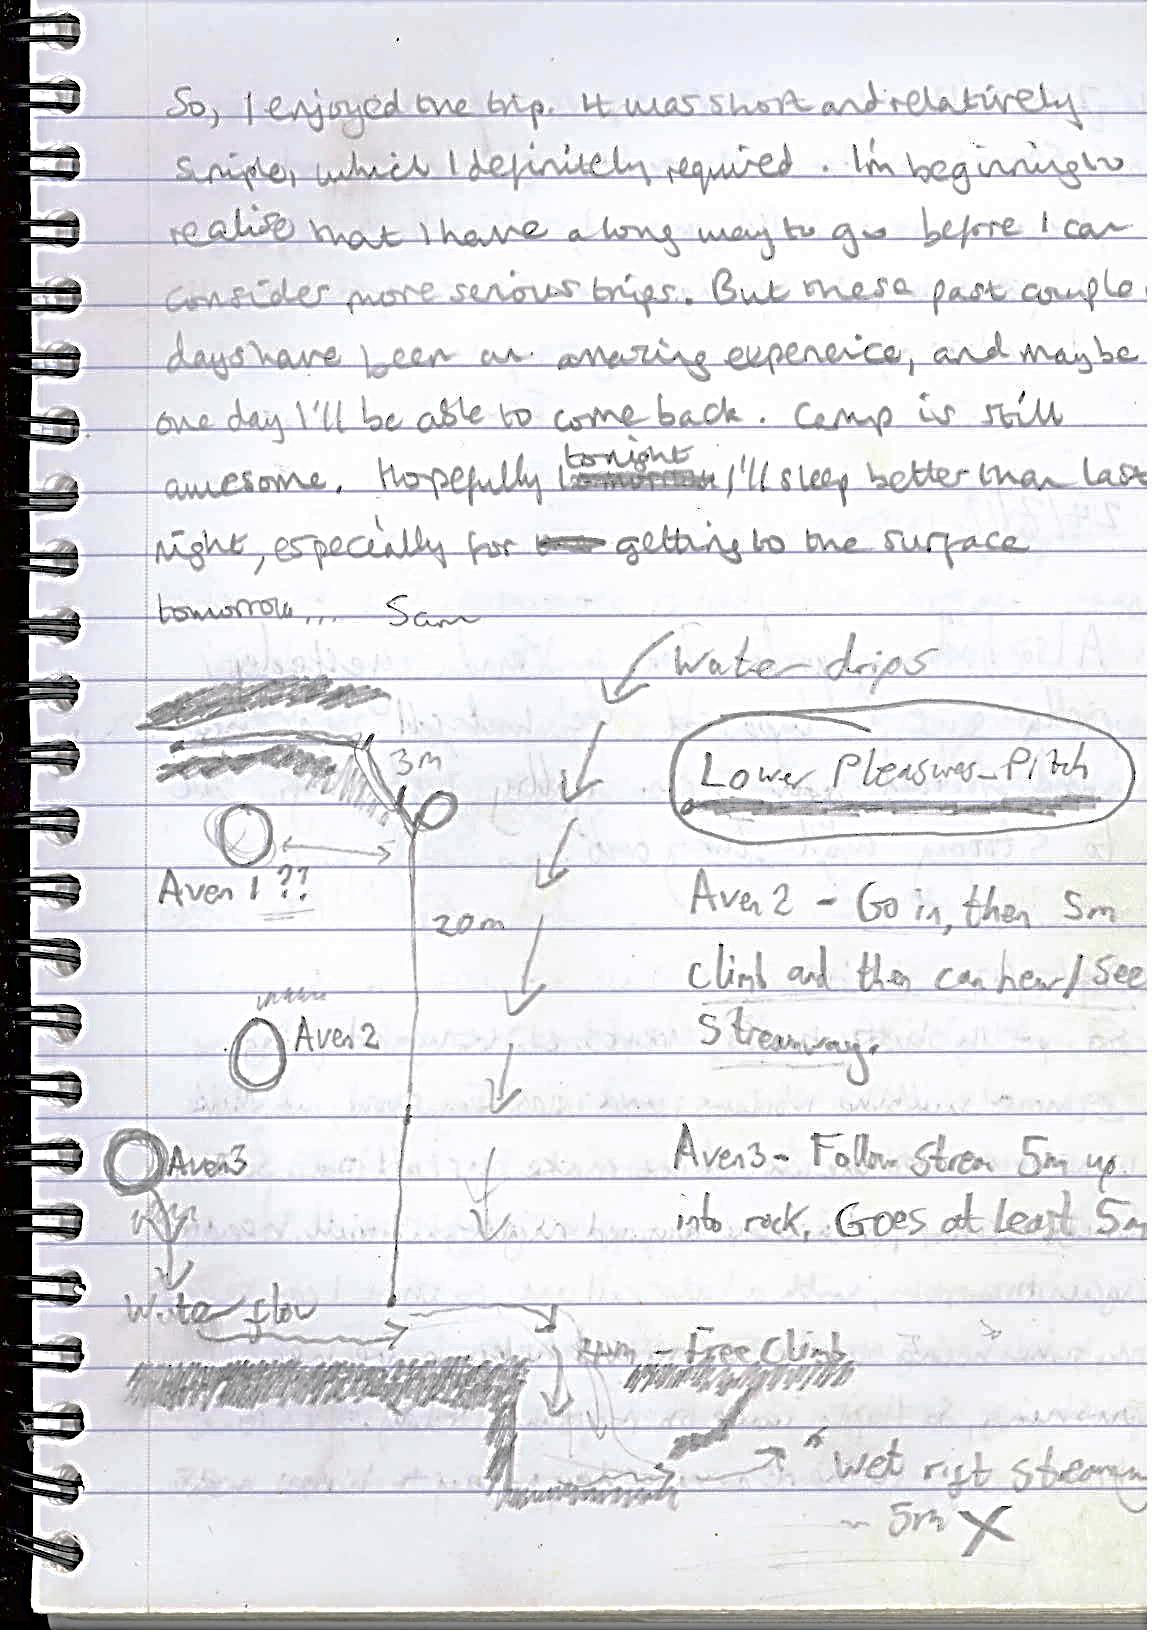 So, I enjoyed the trip. It was short and relatively
simple, which I definitely required. I'm beginning to
realise that I have a long way to go before I can
consider more serious trips. But these past couple
days have been an amazing experience, and maybe
one day I'll be able to come back. Camp is still
awesome. Hopefully tonight I'll sleep better than last
night, especially for getting to the surface
tomorrow... Sam
Water drips
3m
Lower Pleasures Pitch
Aven 1 ??
20m
Aven 2 - Go in, then 5m
climb and then can hear/see
streamway.
Aven 2
Aven 3 - Follow stream 5m up
into rock. Goes at least 5m
Aven 3
Water flow
- Free Climb
"Wet rift
~ 5m X